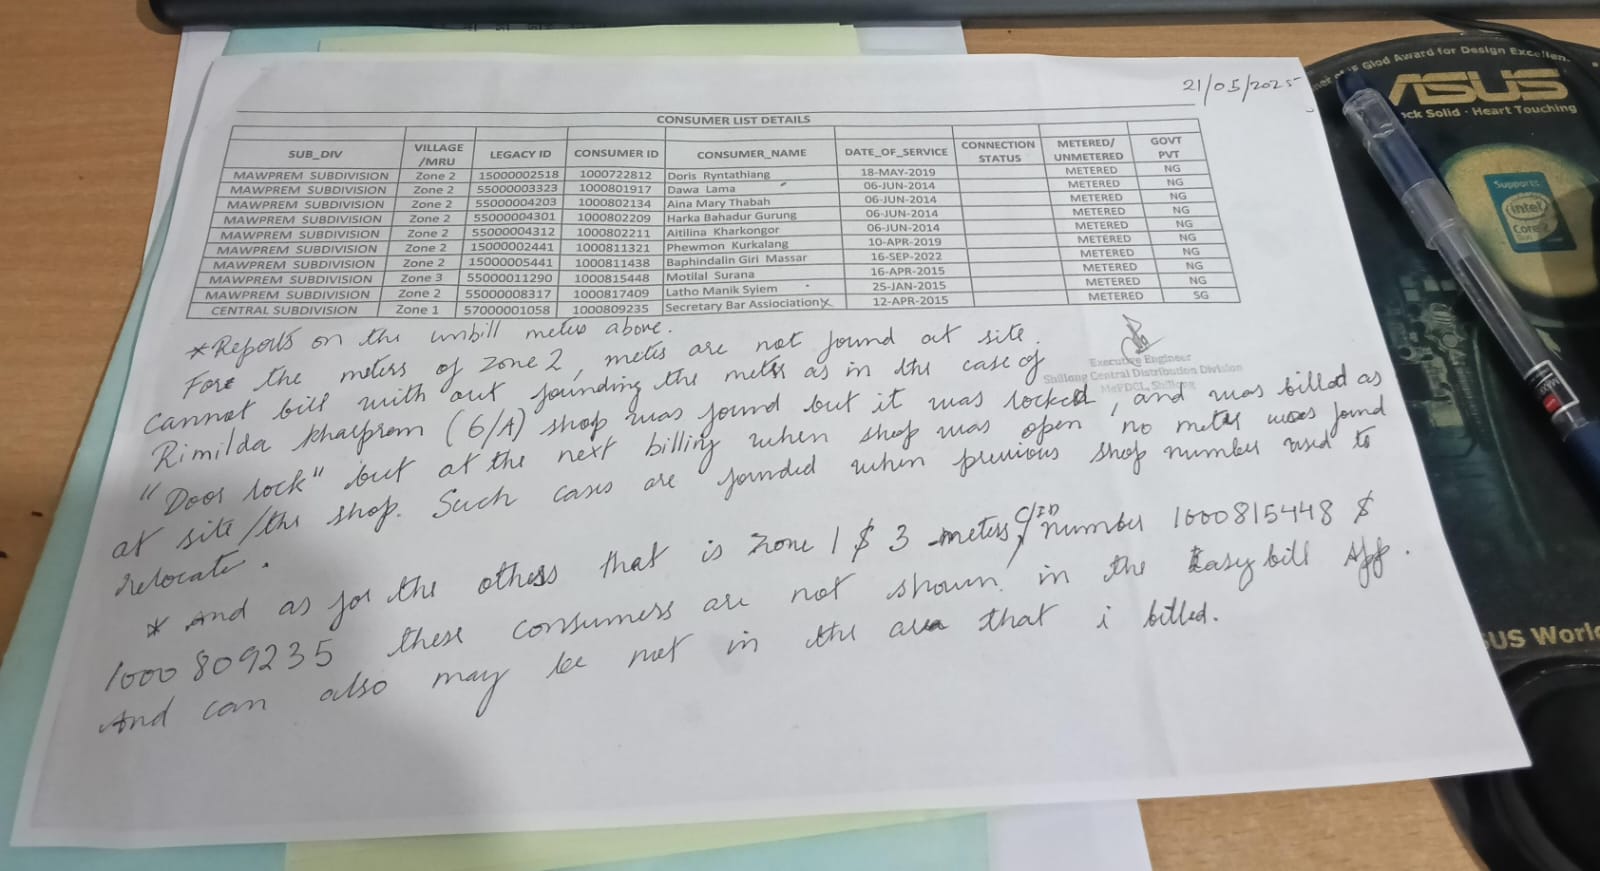 21/05/2025
CONSUMER LIST DETAILS
SUB_DIV VILLAGE /MRU LEGACY ID CONSUMER ID CONSUMER_NAME DATE_OF_SERVICE CONNECTION STATUS METERED/ UNMETERED GOVT PVT
MAWPREM SUBDIVISION Zone 2 15000002518 1000722812 Doris Ryntathiang 18-MAY-2019 METERED NG
MAWPREM SUBDIVISION Zone 2 55000003323 1000801917 Dawa Lama 06-JUN-2014 METERED NG
MAWPREM SUBDIVISION Zone 2 55000004203 1000802134 Aina Mary Thabah 06-JUN-2014 METERED NG
MAWPREM SUBDIVISION Zone 2 55000004301 1000802209 Harka Bahadur Gurung 06-JUN-2014 METERED NG
MAWPREM SUBDIVISION Zone 2 55000004312 1000802211 Aitilina Kharkongor 06-JUN-2014 METERED NG
MAWPREM SUBDIVISION Zone 2 15000002441 1000811321 Phewmon Kurkalang 10-APR-2019 METERED NG
MAWPREM SUBDIVISION Zone 2 15000005441 1000811438 Baphindalin Giri Massar 16-SEP-2022 METERED NG
MAWPREM SUBDIVISION Zone 3 55000011290 1000815448 Motilal Surana 16-APR-2015 METERED NG
MAWPREM SUBDIVISION Zone 2 55000008317 1000817409 Latho Manik Syiem 25-JAN-2015 METERED NG
CENTRAL SUBDIVISION Zone 1 57000001058 1000809235 Secretary Bar Assiociation 12-APR-2015 METERED SG
* Reports on the unbill meters above.
Executive Engineer
Shillong Central Distribution Division
MePDCL, Shillong
Fore the meters of zone 2, meters are not found at site.
Cannot bill with out founding the meter as in the case of
Rimilda Kharprom (6/A) shop was found but it was locked, and was billed as
"Door lock" but at the next billing when shop was open no meter was found
at site/the shop. Such cases are founded when previous shop number used to
relocate.
* And as for the others that is zone 1 $ 3 meters, C/ID number 1000815448 $
1000809235 these consumers are not shown in the Easy bill App.
And can also may be not in the area that i billed.
of Glod Award for Design Excellen
ASUS
ock Solid · Heart Touching
Supports
intel
Core 2
SUS World